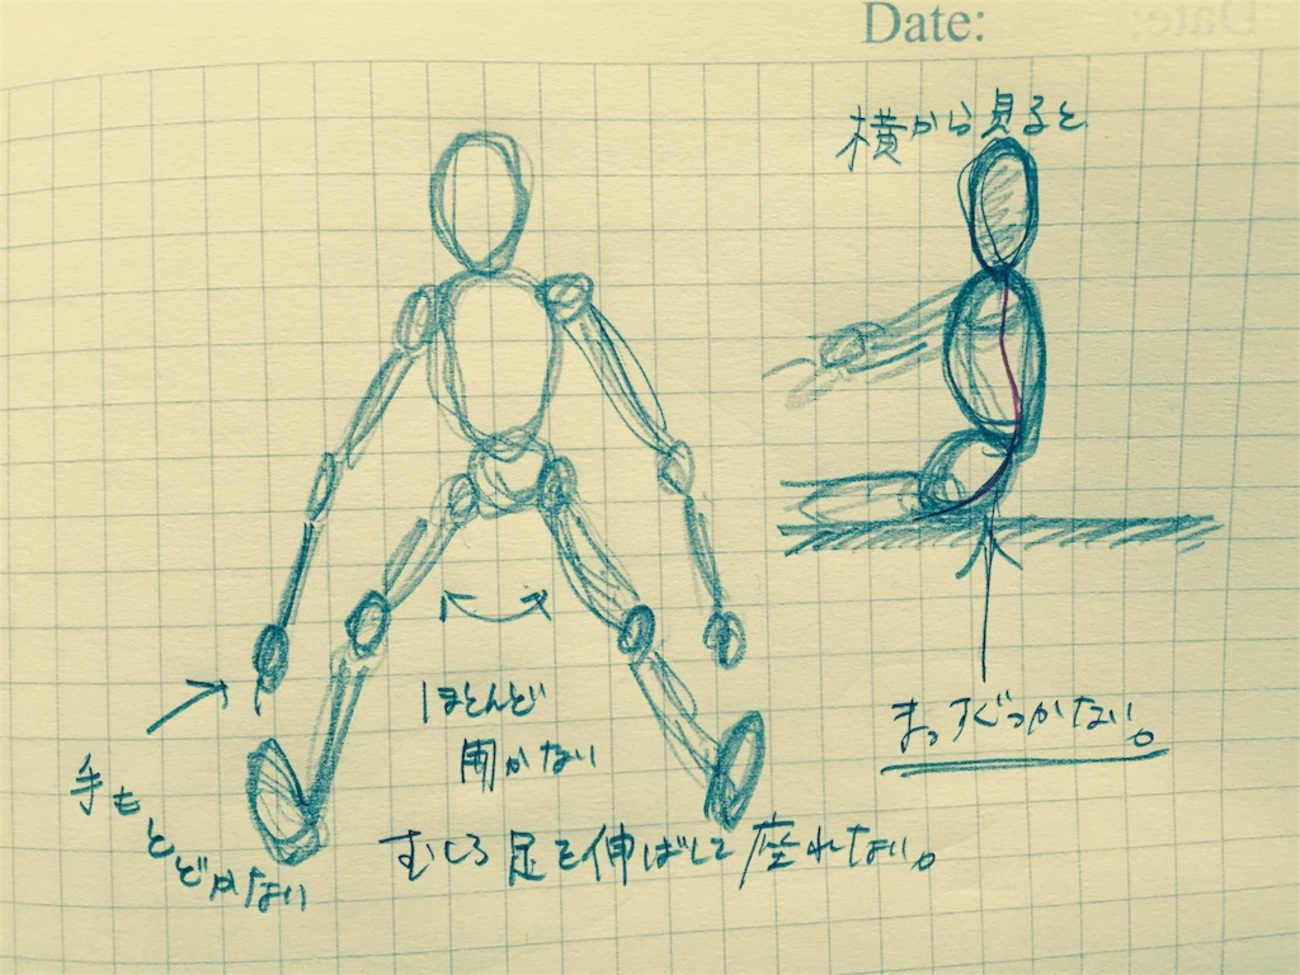 Date:
横から見ると
まっすぐつかない。
ほとんど
開かない
手もとどかない
むしろ足を伸ばして座れない。